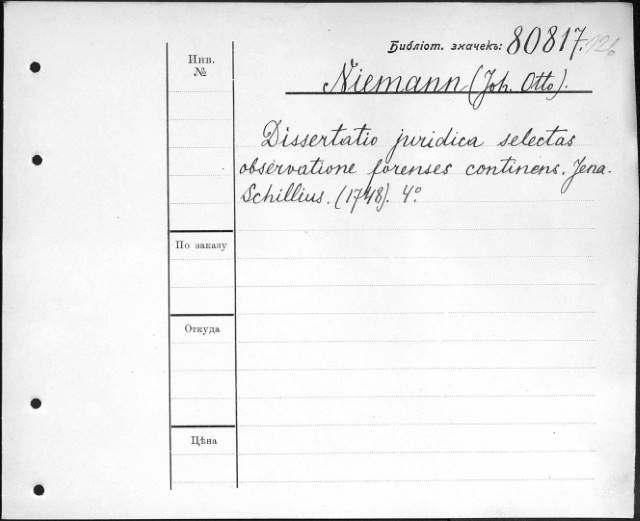 Библіот. значекъ: 80817.
Инв.
№
Niemann (Joh. Otto).
Dissertatio juridica selectas
observatione forenses continens. Jena.
Schillius. (1748). 4°
По заказу
Откуда
Цѣна